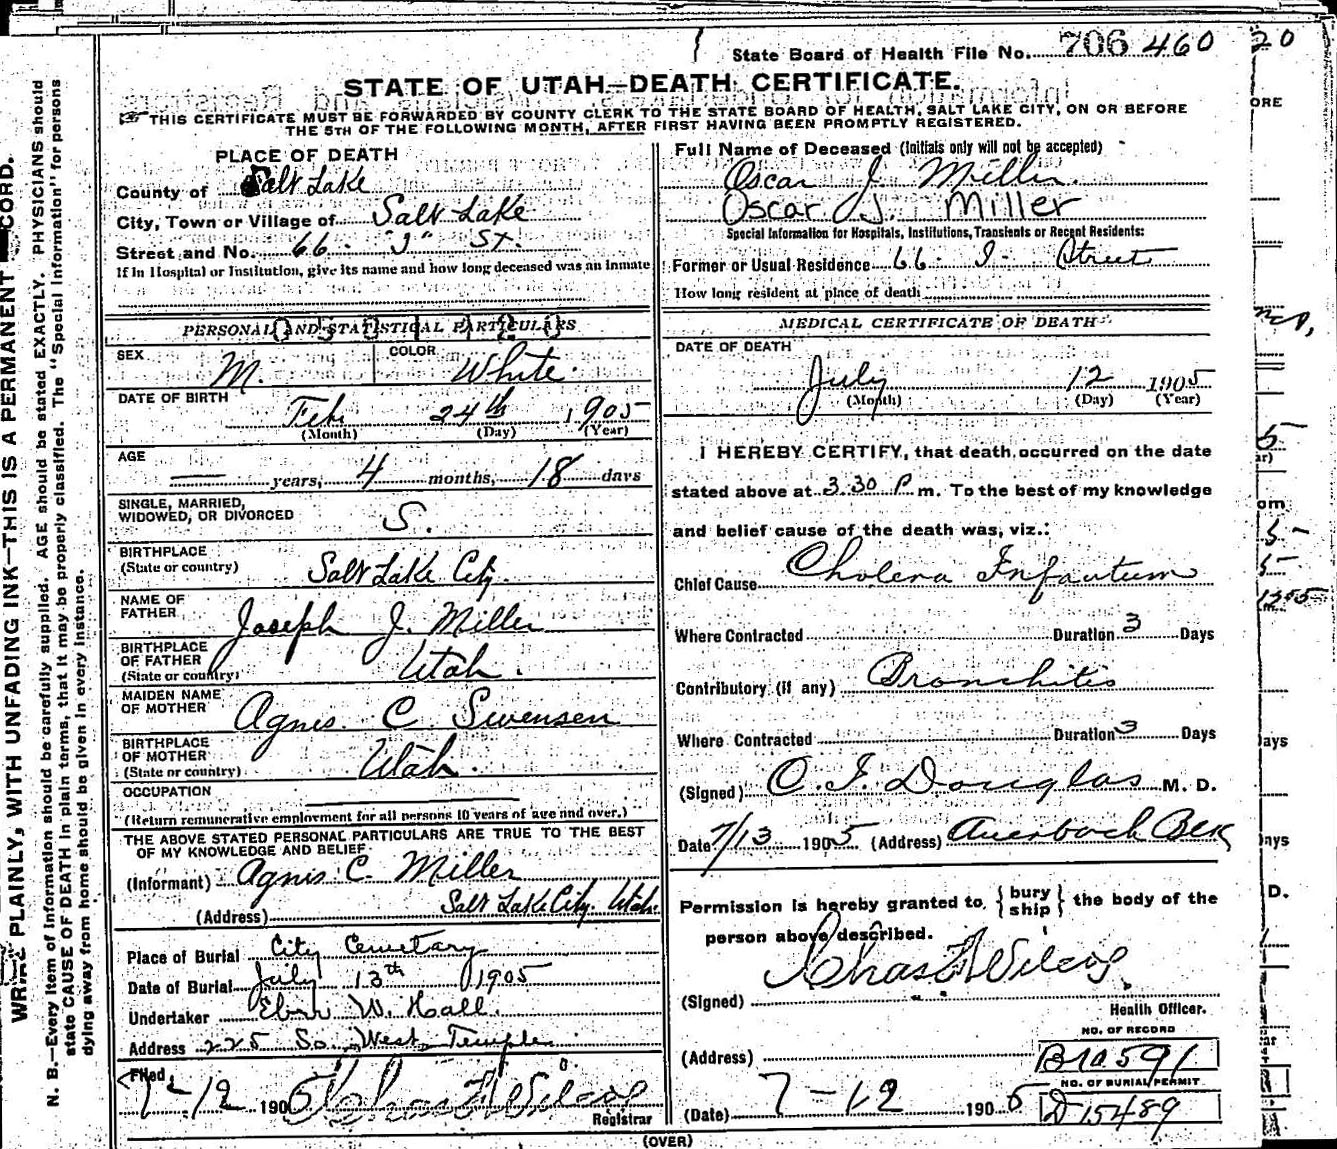 State Board of Health File No. 706 460
STATE OF UTAH—DEATH CERTIFICATE.
THIS CERTIFICATE MUST BE FORWARDED BY COUNTY CLERK TO THE STATE BOARD OF HEALTH, SALT LAKE CITY, ON OR BEFORE
THE 5TH OF THE FOLLOWING MONTH, AFTER FIRST HAVING BEEN PROMPTLY REGISTERED.
PLACE OF DEATH
County of Salt Lake
City, Town or Village of Salt Lake
Street and No. 66 "J" St.
If in Hospital or Institution, give its name and how long deceased was an inmate
PERSONAL AND STATISTICAL PARTICULARS
SEX M.
COLOR White.
DATE OF BIRTH
Feb. 24th 1905
(Month) (Day) (Year)
AGE
— years, 4 months, 18 days
SINGLE, MARRIED,
WIDOWED, OR DIVORCED S.
BIRTHPLACE
(State or country) Salt Lake City.
NAME OF
FATHER Joseph J. Miller
BIRTHPLACE
OF FATHER
(State or country) Utah.
MAIDEN NAME
OF MOTHER Agnes C Swensen
BIRTHPLACE
OF MOTHER
(State or country) Utah.
OCCUPATION
(Return remunerative employment for all persons 10 years of age and over.)
THE ABOVE STATED PERSONAL PARTICULARS ARE TRUE TO THE BEST
OF MY KNOWLEDGE AND BELIEF
(Informant) Agnes C. Miller
(Address) Salt Lake City. Utah.
Place of Burial City Cemetary
Date of Burial July 13th 1905
Undertaker Eber W. Hall.
Address 225 So. West Temple
Filed,
7-12 1905 Chas F Wilcox
Registrar
Full Name of Deceased (Initials only will not be accepted)
Oscar J Miller.
Oscar J. Miller
Special Information for Hospitals, Institutions, Transients or Recent Residents:
Former or Usual Residence 66 J Street
How long resident at place of death
MEDICAL CERTIFICATE OF DEATH
DATE OF DEATH
July 12 1905
(Month) (Day) (Year)
I HEREBY CERTIFY, that death occurred on the date
stated above at 3.30 P m. To the best of my knowledge
and belief cause of the death was, viz.:
Chief Cause Cholera Infantum
Where Contracted Duration 3 Days
Contributory (if any) Bronchitis
Where Contracted Duration 3 Days
(Signed) C. F. Douglas M. D.
Date 7/13 1905 (Address) Auerbach Blk
Permission is hereby granted to { bury ship } the body of the
person above described.
Chas F Wilcox
(Signed)
Health Officer.
NO. OF RECORD
(Address) B10591
NO. OF BURIAL PERMIT
(Date) 7-12 1905 D15489
(OVER)
WRITE PLAINLY, WITH UNFADING INK—THIS IS A PERMANENT RECORD.
N. B.—Every item of information should be carefully supplied. AGE should be stated EXACTLY. PHYSICIANS should
state CAUSE OF DEATH in plain terms, that it may be properly classified. The "Special Information" for persons
dying away from home should be given in every instance.